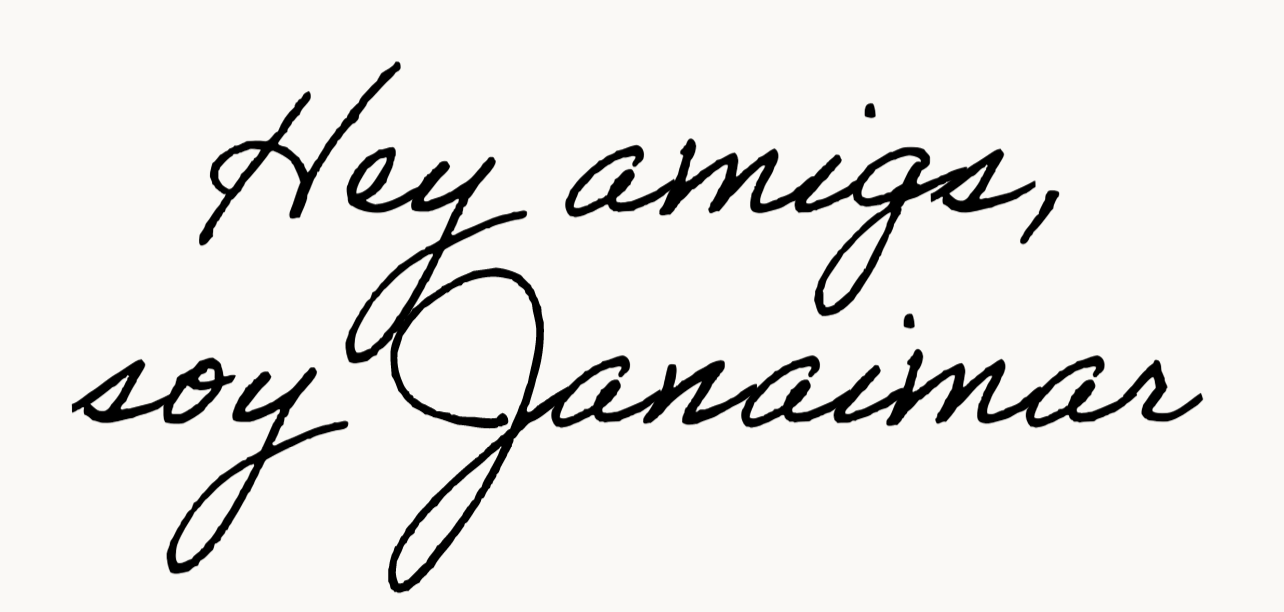 Hey amigs,
soy Janaimar